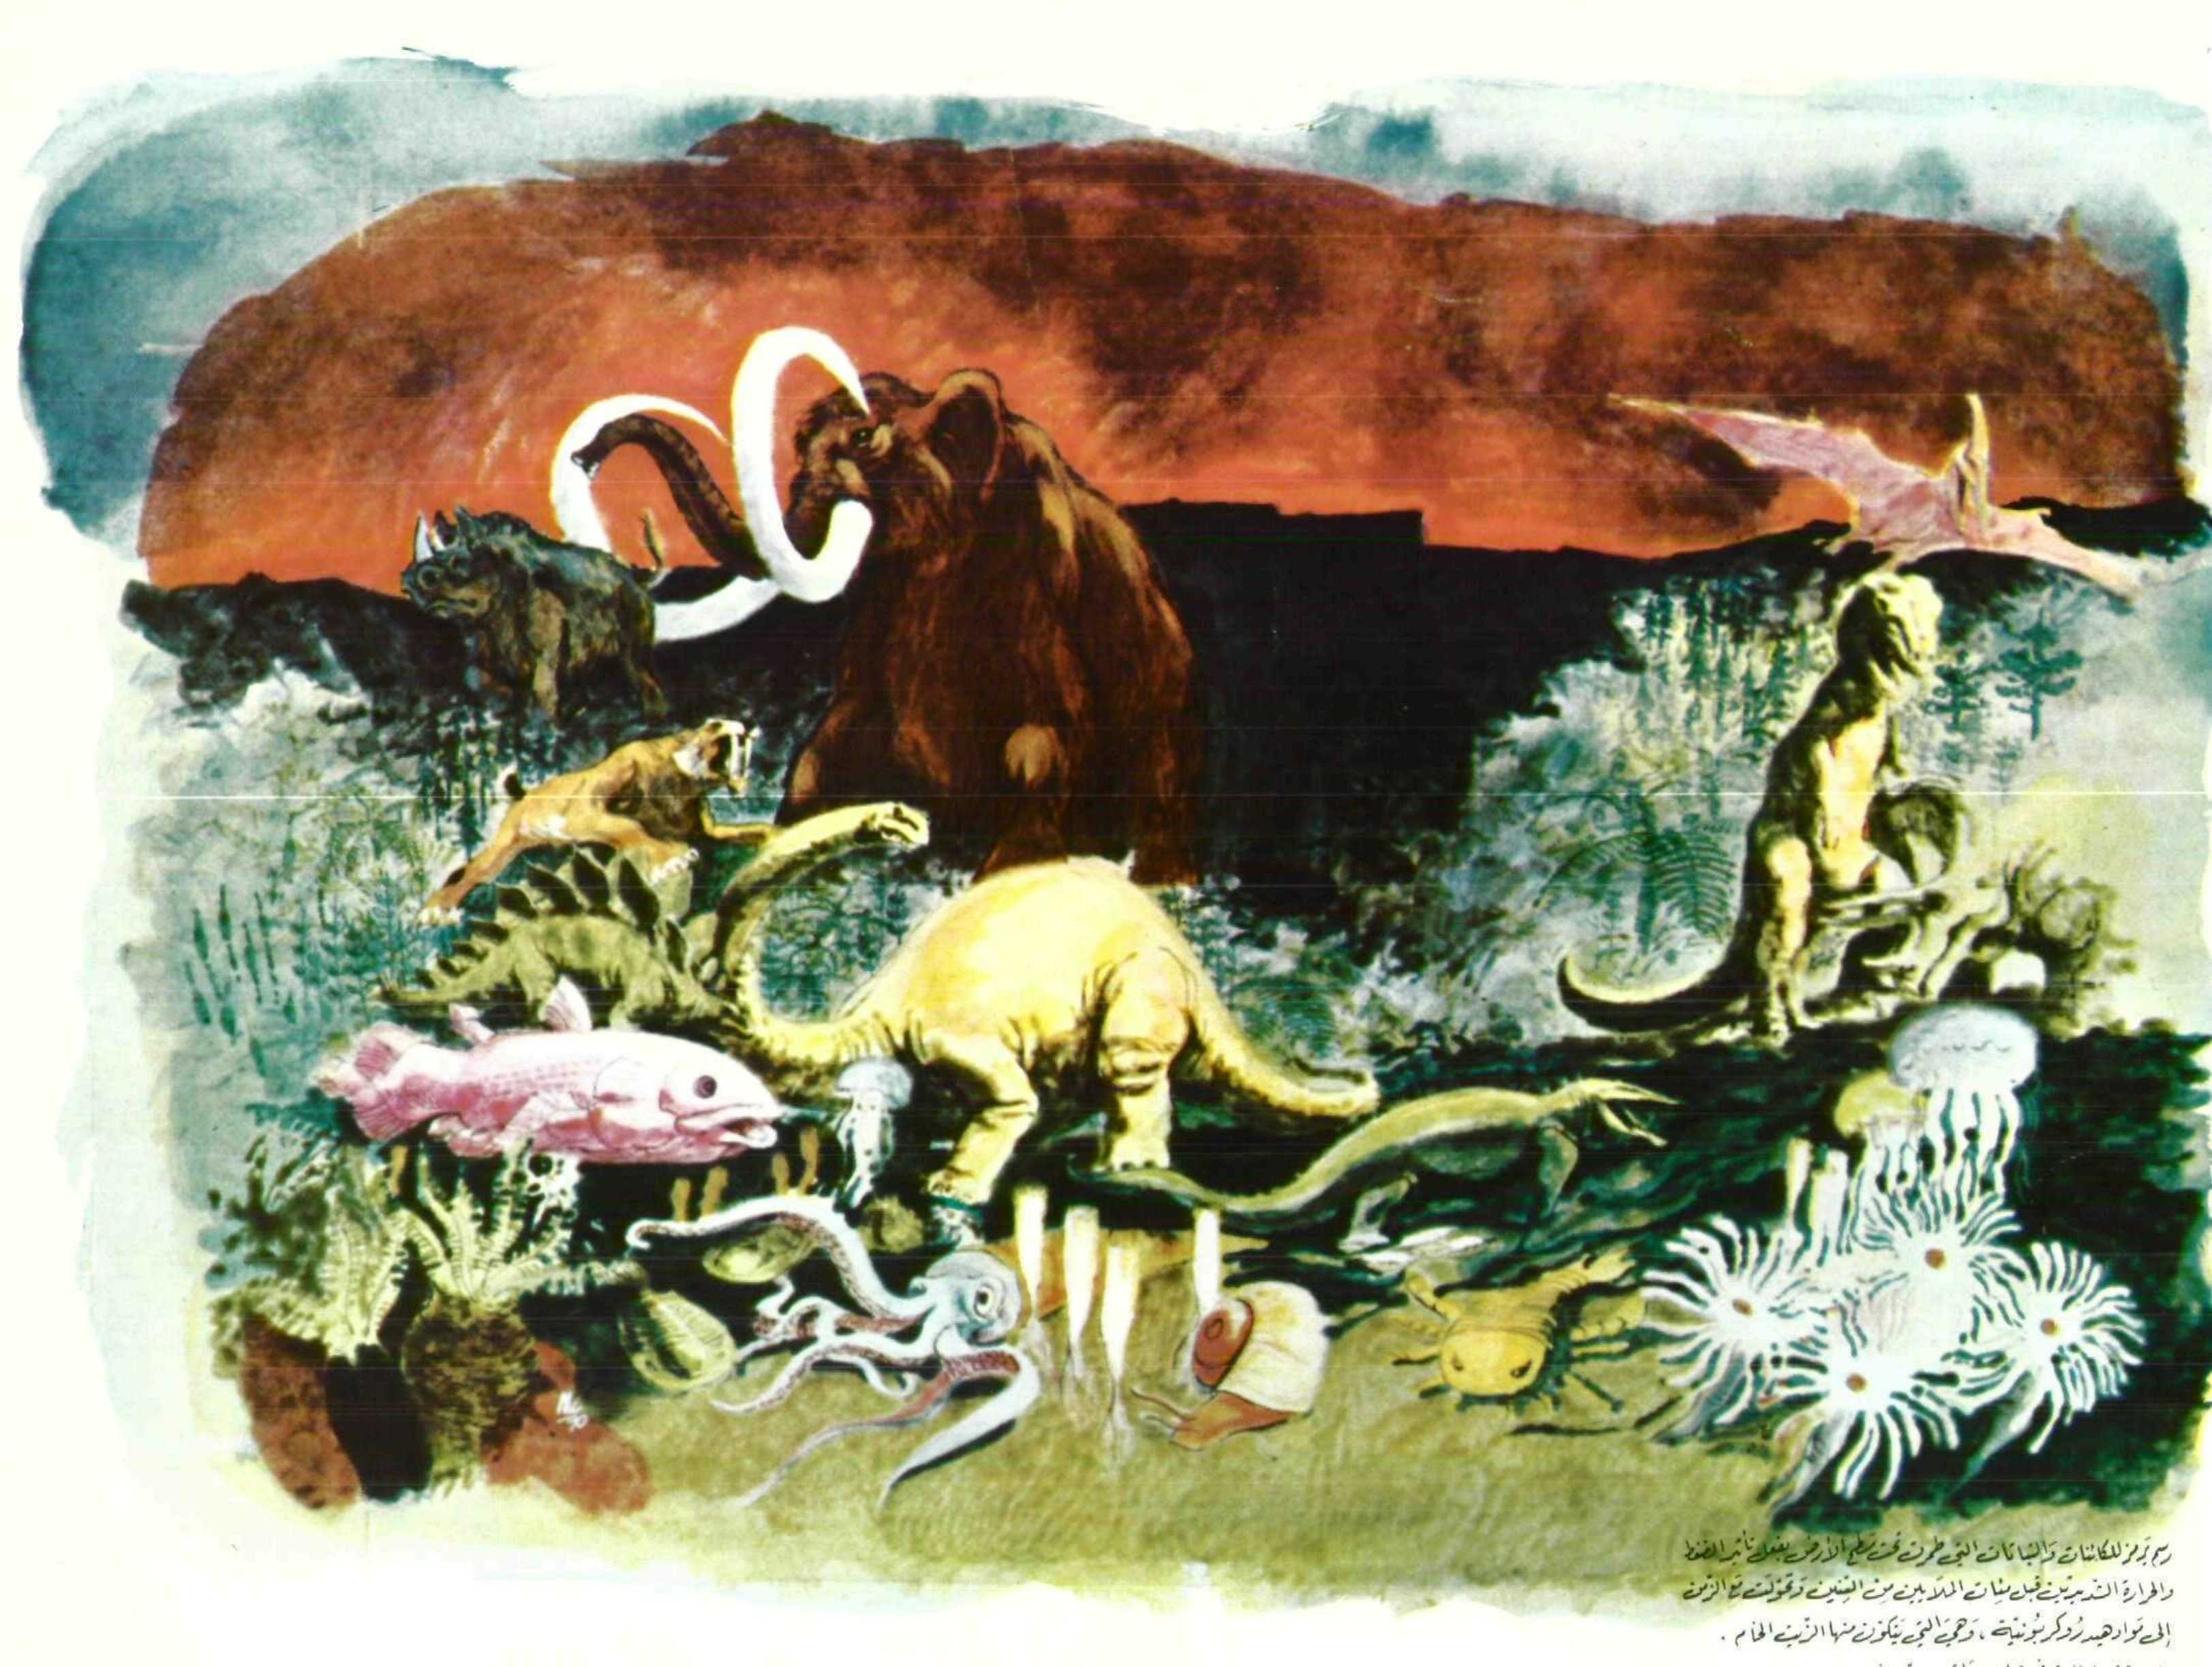 رسم يرمز للكائنات والنباتات التي طمرت تحت سطح الأرض بفعل تأثير الضغط
والحرارة الشديدين قبل مئات الملايين من السنين وتحولت مع الزمن
إلى مواد هيدروكربونية ، وهي التي يتكون منها الزيت الخام .